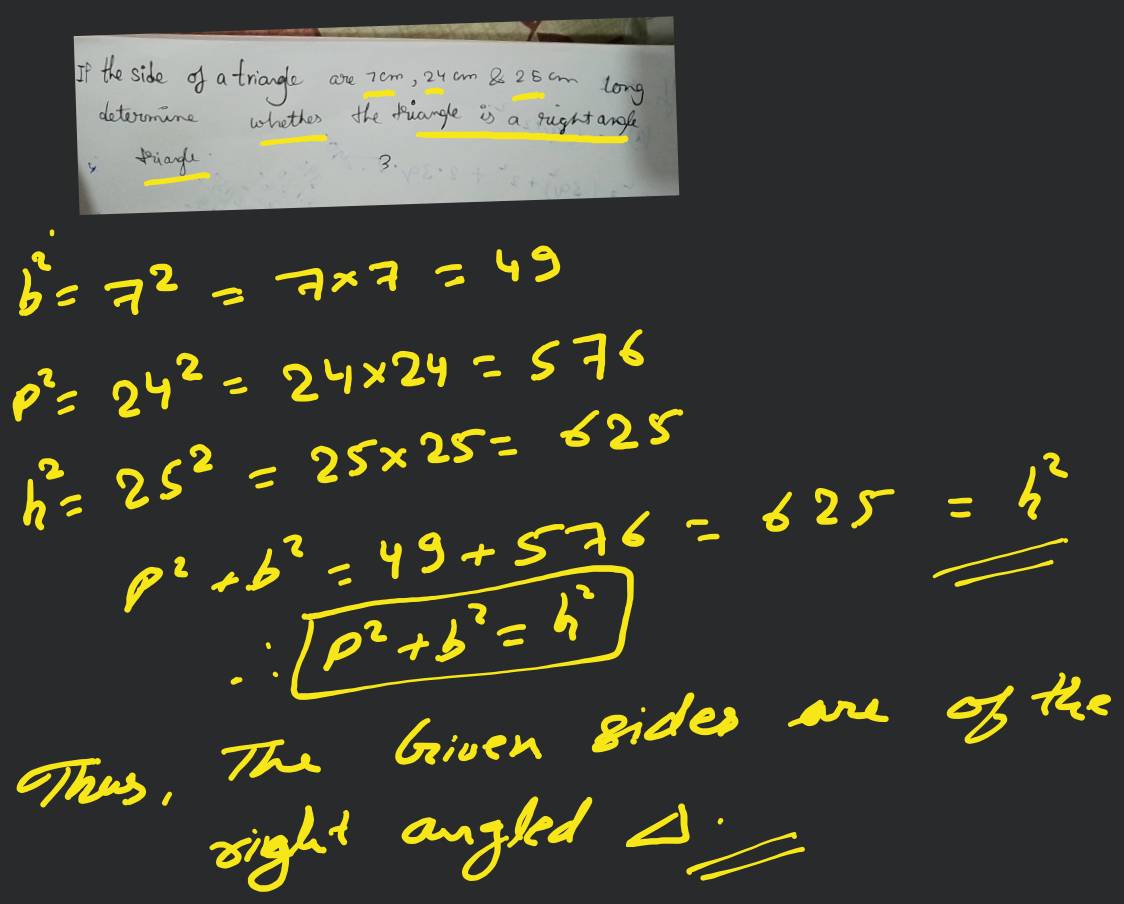 If the side of a triangle are 7cm, 24 cm & 25 cm long
determine whether the triangle is a right angle
triangle. 3.
b² = 7² = 7×7 = 49
p² = 24² = 24×24 = 576
h² = 25² = 25×25 = 625
p² + b² = 49 + 576 = 625 = h²
∴ p² + b² = h²
Thus, The Given sides are of the
right angled △.